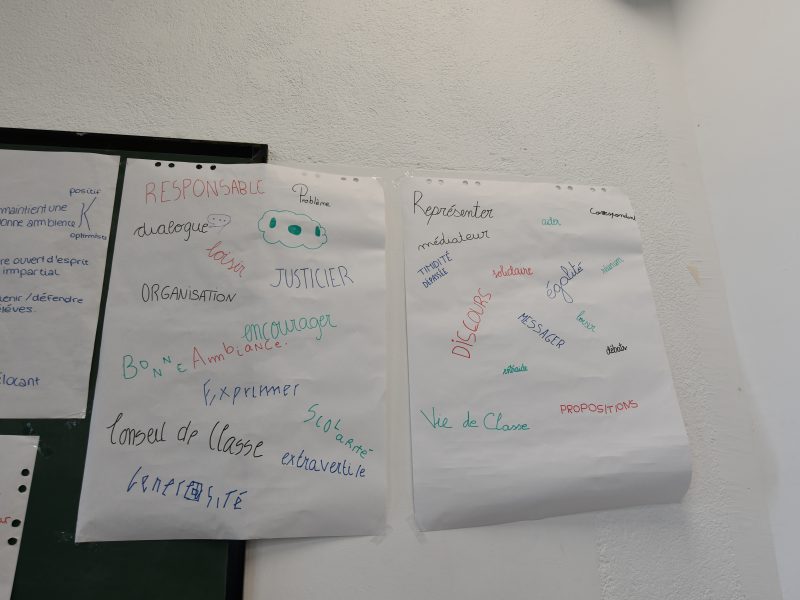 positif
maintient une
onne ambience
K
optimiste
re ouvert d'esprit
impartial
enir / défendre
élèves.
élocant
RESPONSABLE
Problème
dialogue
loisir
JUSTICIER
ORGANISATION
encourager
BONNE Ambiance.
Exprimer
SCOLARITÉ
Conseil de Classe
extravertile
GénérOSITÉ
Représenter
aider
Correspondant
médiateur
TIMIDITÉ
DÉPASSÉE
solidaire
égalité
réunion
DISCOURS
MESSAGER
loisir
débats
entraide
Vie de Classe
PROPOSITIONS